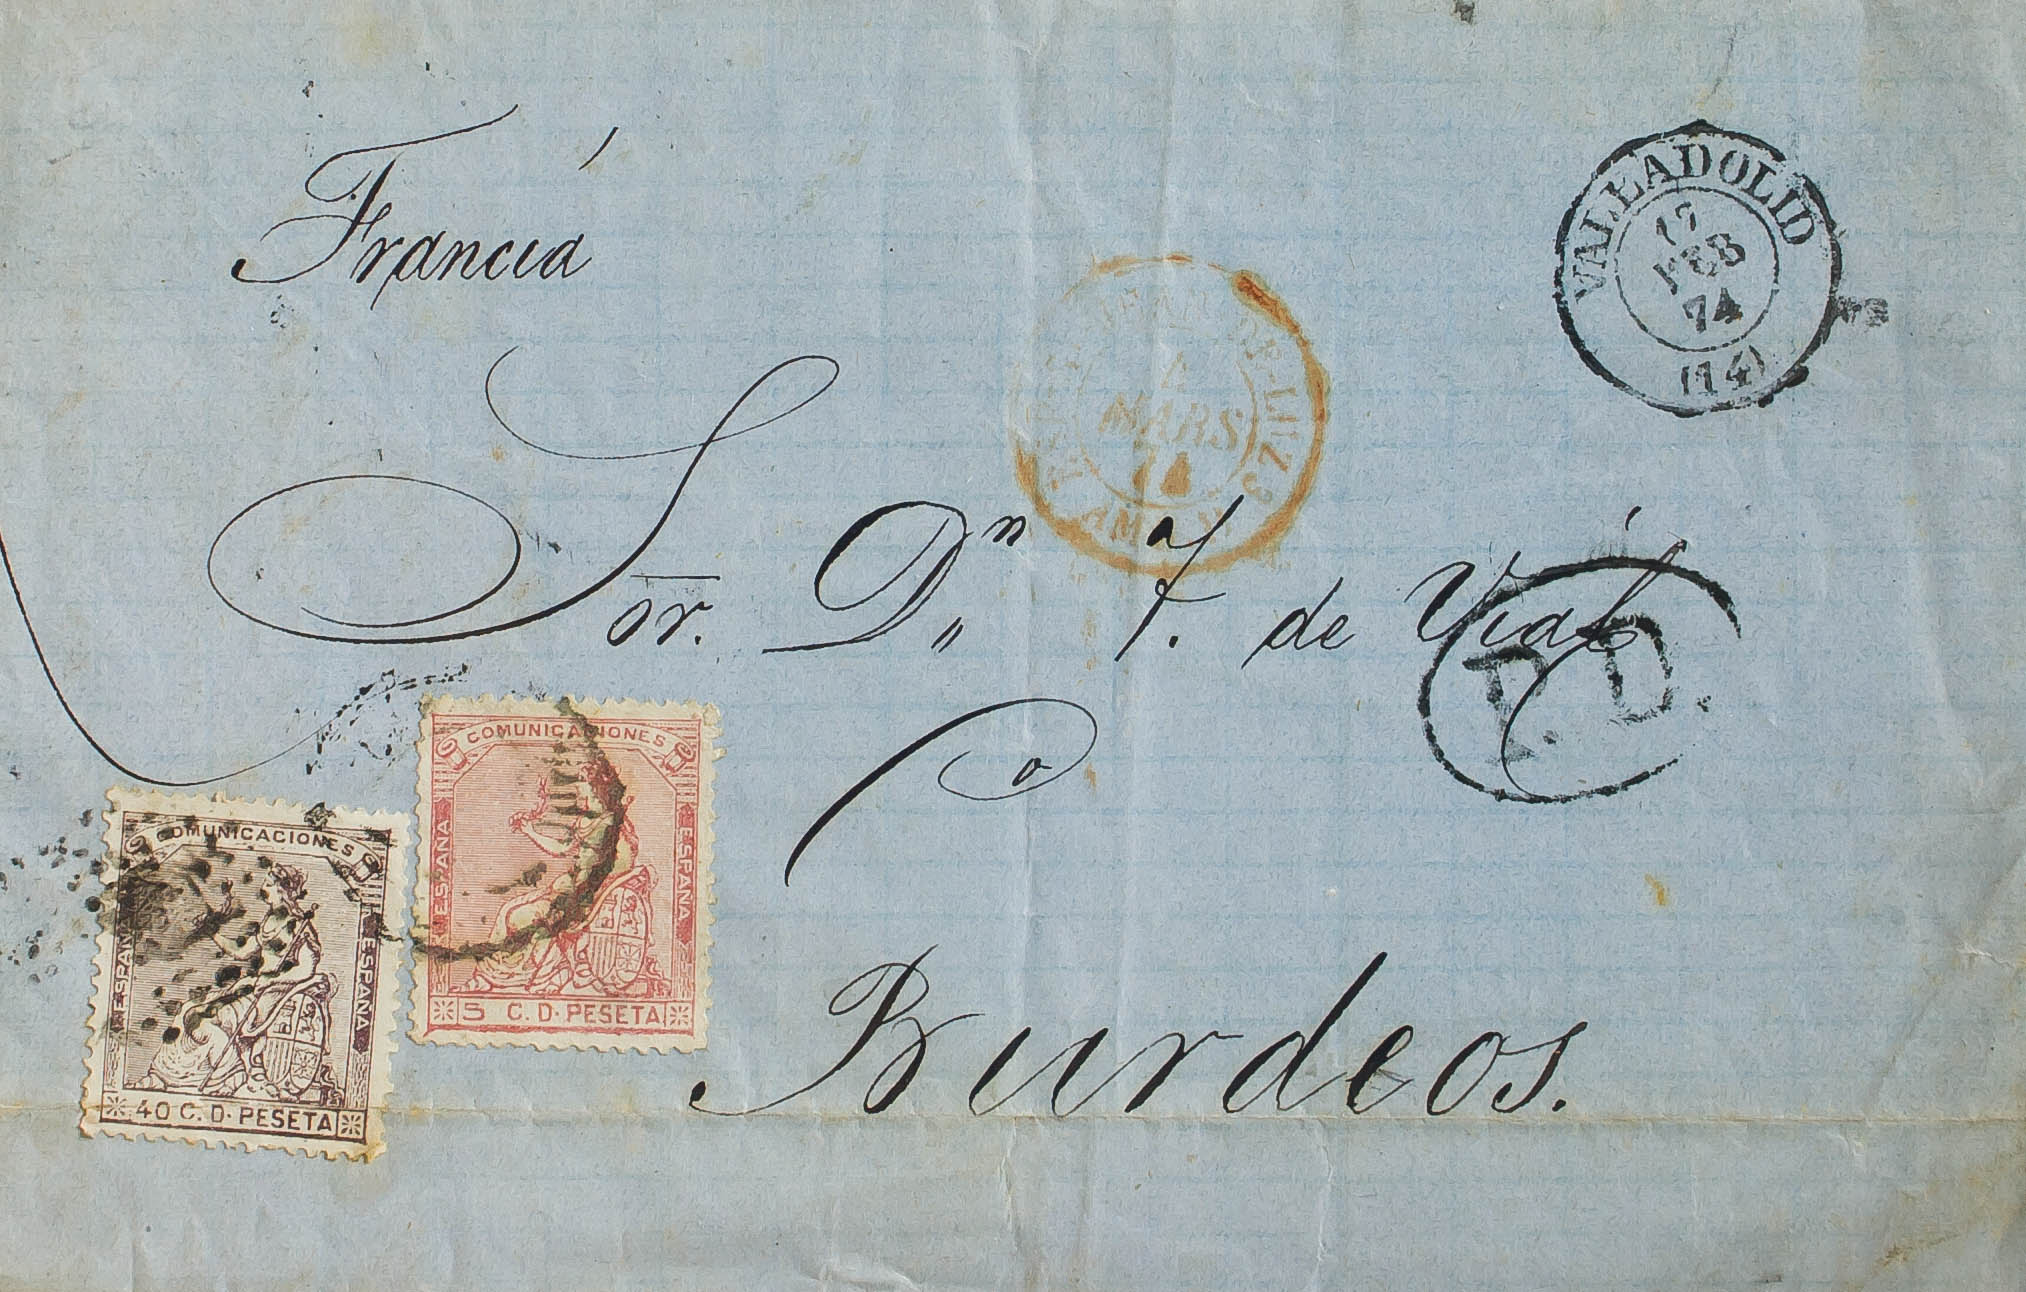 Francia
VALLADOLID
17
FEB
74
(14)
4
MARS
74
Sor. Dn a/f. de Vial
P.D.
COMUNICACIONES
ESPAÑA
ESPAÑA
5 C. D. PESETA
COMUNICACIONES
ESPAÑA
ESPAÑA
40 C. D. PESETA
Burdeos.